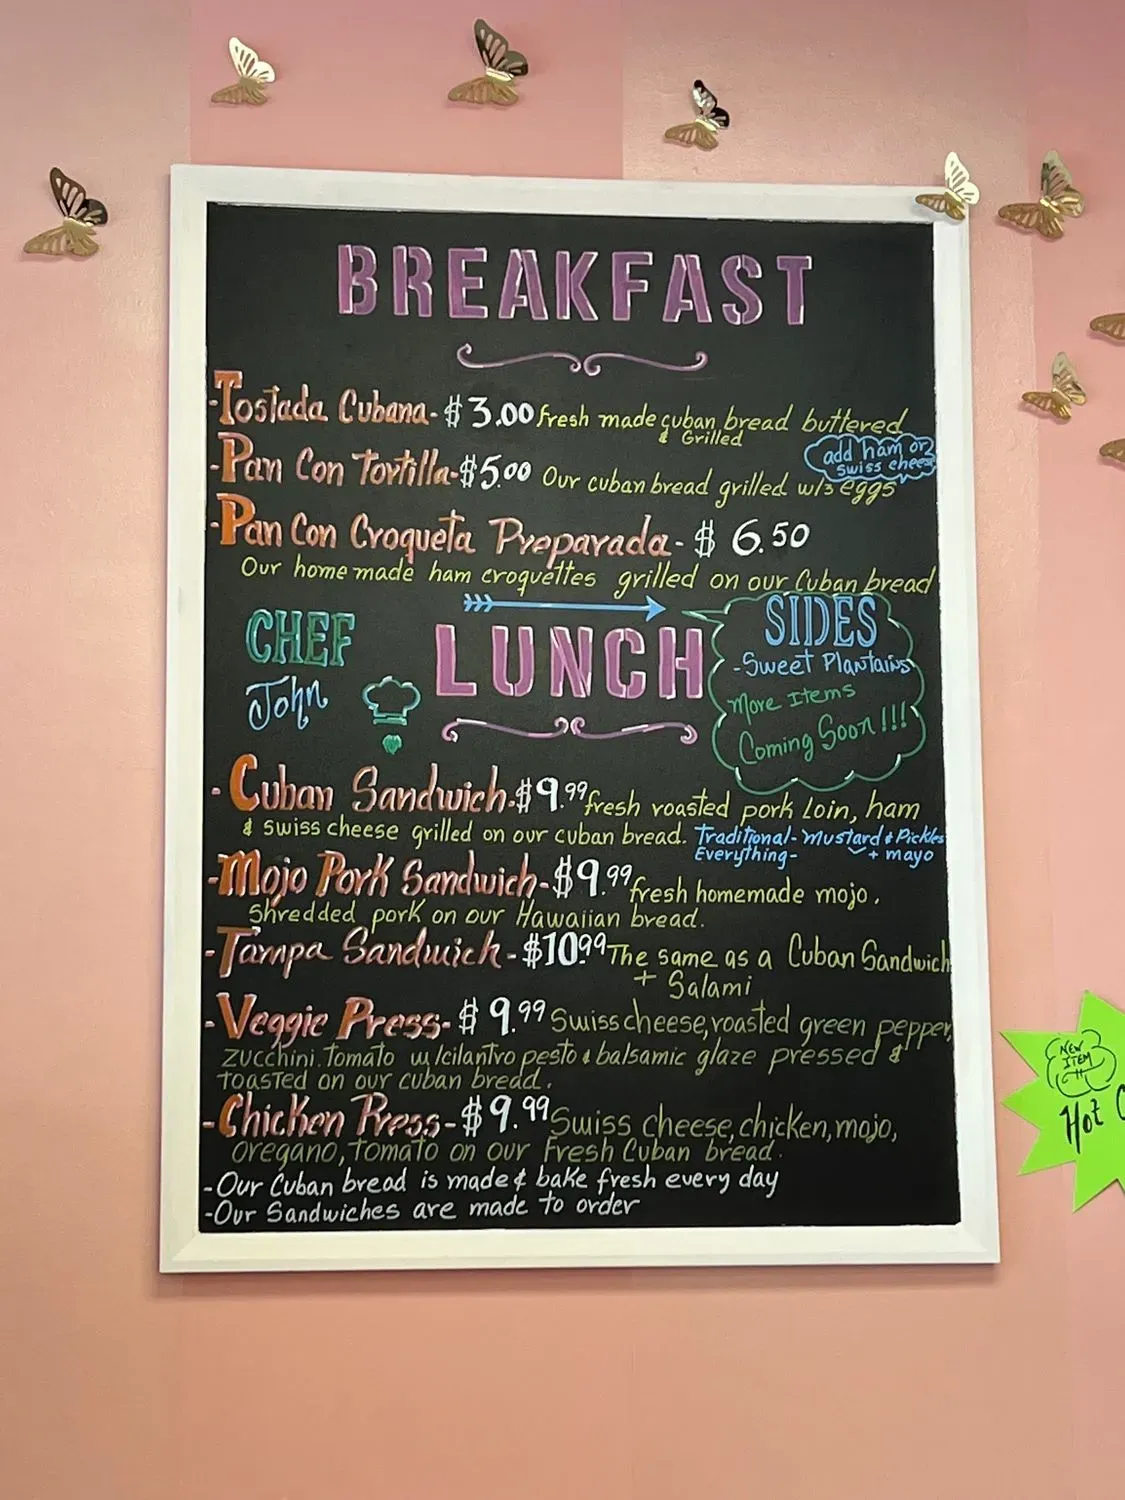 BREAKFAST
-Tostada Cubana- $3.00 fresh made cuban bread buttered
& Grilled
-Pan Con Tortilla-$5.00 Our cuban bread grilled w/3 eggs
add ham or
swiss cheese
-Pan Con Croqueta Preparada- $ 6.50
Our home made ham croquettes grilled on our Cuban bread
CHEF
John
LUNCH
SIDES
-Sweet Plantains
More Items
Coming Soon!!!
- Cuban Sandwich-$9.99 fresh roasted pork Loin, ham
& swiss cheese grilled on our cuban bread. Traditional- Mustard & Pickles
Everything- + mayo
-Mojo Pork Sandwich-$9.99 fresh homemade mojo.
Shredded pork on our Hawaiian bread.
-Tampa Sandwich-$10.99 The same as a Cuban Sandwich
+ Salami
-Veggie Press- $ 9.99 Swiss cheese, roasted green pepper,
zucchini. tomato w/cilantro pesto & balsamic glaze pressed &
toasted on our cuban bread.
-Chicken Press-$9.99 Swiss cheese, chicken, mojo,
oregano, tomato on our Fresh Cuban bread.
-Our Cuban bread is made & bake fresh every day
-Our Sandwiches are made to order
NEW
ITEM
Hot